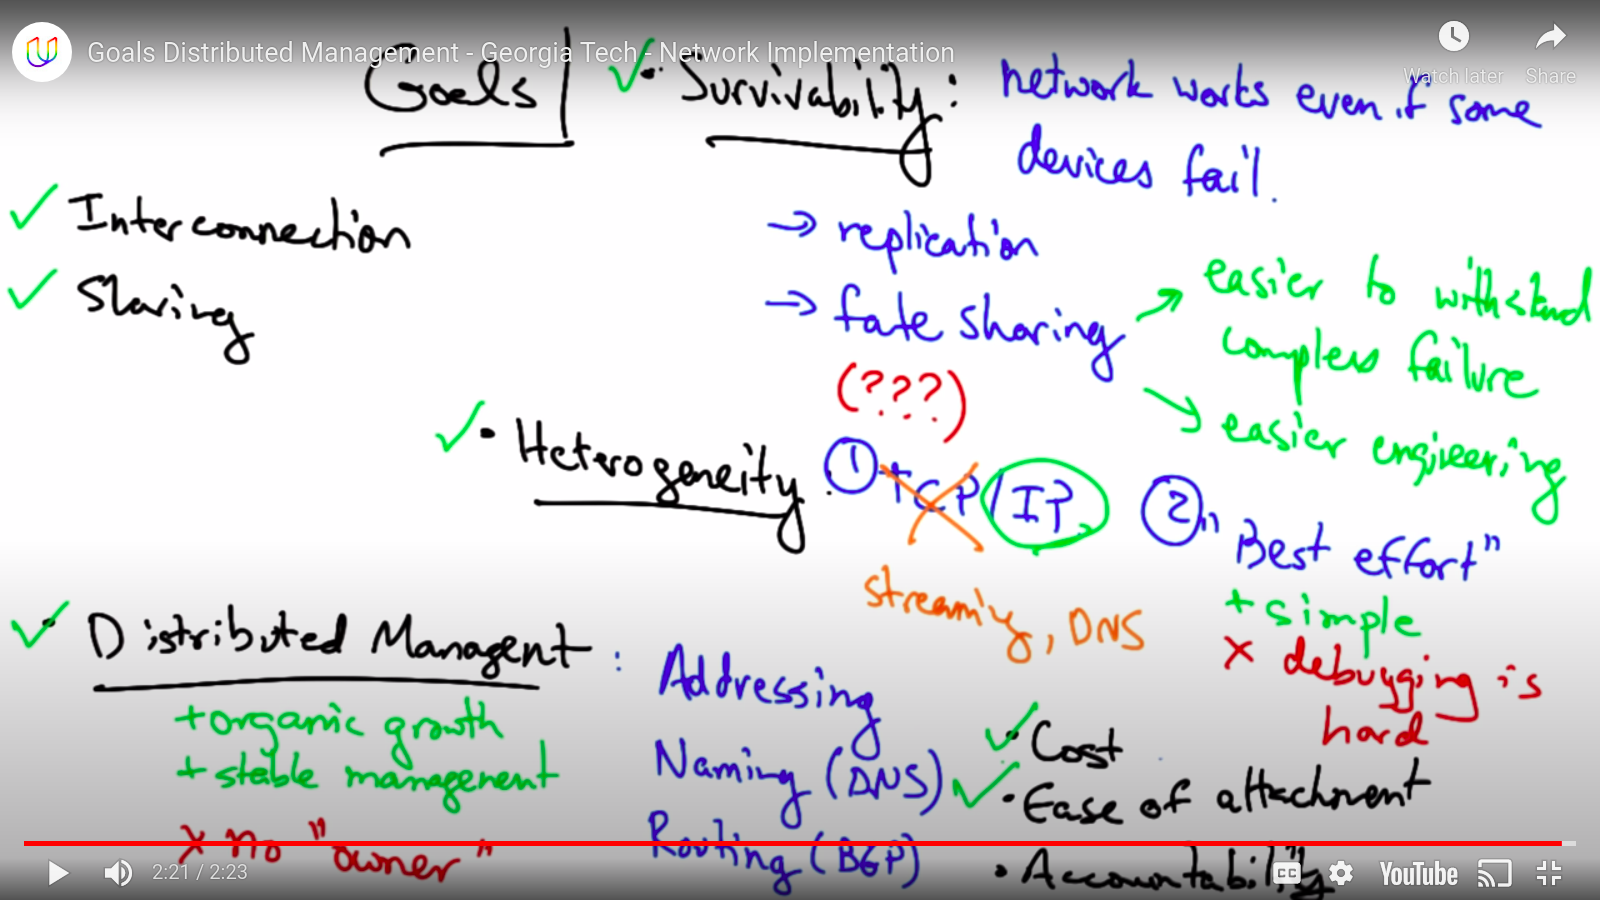 Goals Distributed Management - Georgia Tech - Network Implementation
Watch later
Share
Goals
Survivability:
network works even if some
devices fail.
Interconnection
Sharing
→ replication
→ fate sharing
easier to withstand
compless failure
(???)
easier engineering
• Heterogeneity:
1 TCP/IP
2 "Best effort"
streaming, DNS
+ simple
x debugging is
hard
• Distributed Managent:
+ organic growth
+ stable management
x no "owner"
Addressing
Naming (DNS)
Routing (BGP)
• Cost
• Ease of attachment
• Accountability
2:21 / 2:23
CC
YouTube